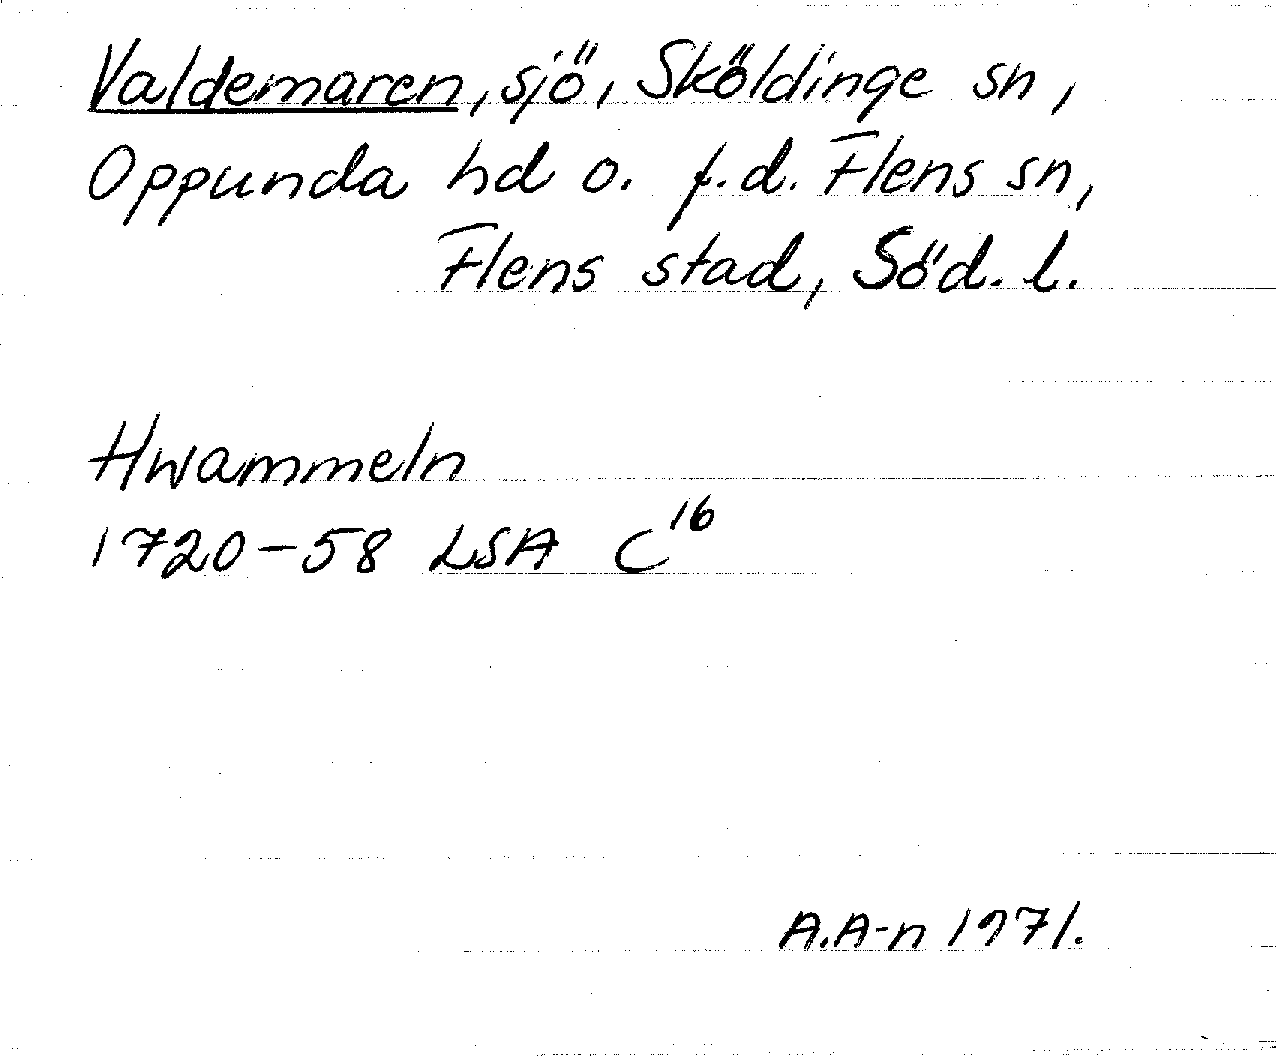 Valdemaren, sjö, Sköldinge sn,
Oppunda hd o. f.d. Flens sn,
Flens stad, Söd. l.
Hwammeln
1720-58 LSA C16
A.A-n 1971.